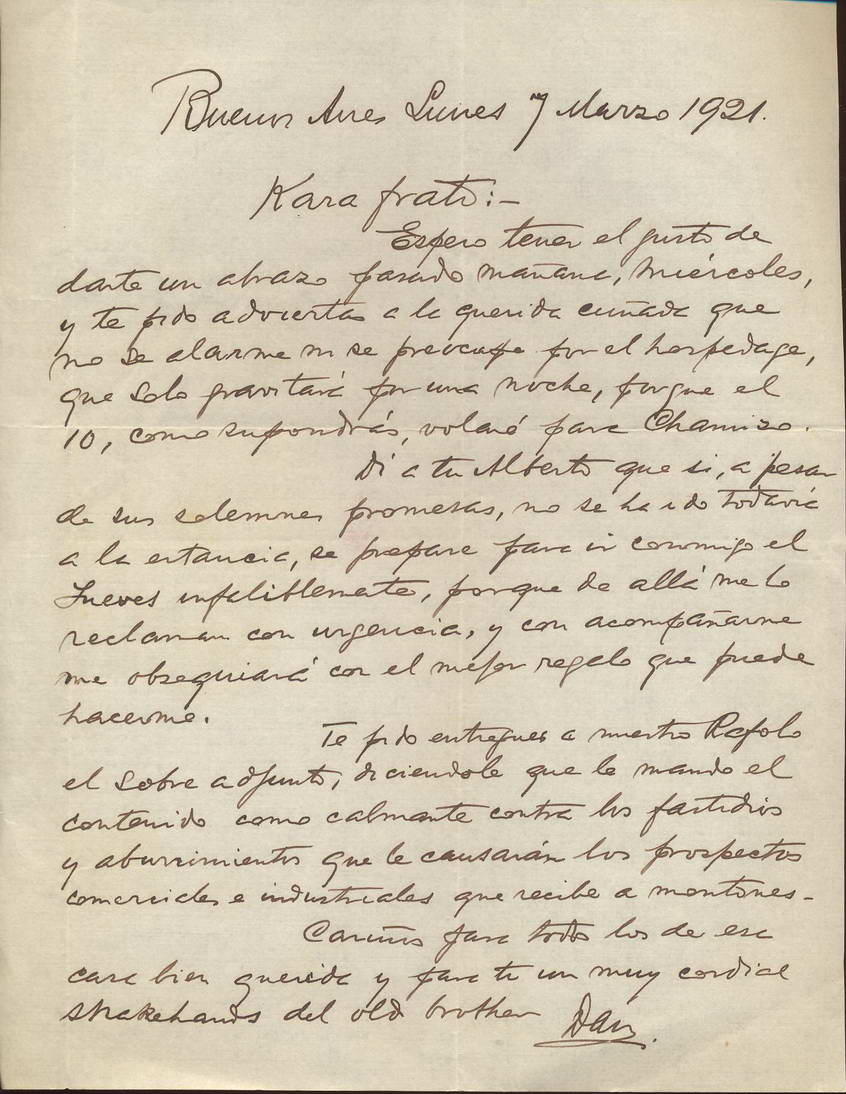 Buenos Aires Lunes 7 Marzo 1921.
Kara frato:-
Espero tener el gusto de
darte un abrazo pasado mañana, miércoles,
y te pido adviertas a la querida cuñada que
no se alarme ni se preocupe por el hospedage,
que solo gravitará por una noche, porque el
10, como supondrás, volaré para Chamizo.
Di a tu Alberto que si, a pesar
de sus solemnes promesas, no se ha ido todavía
a la estancia, se prepare para ir conmigo el
Jueves infaliblemente, porque de allá me lo
reclaman con urgencia, y con acompañarme
me obsequiará con el mejor regalo que puede
hacerme.
Te pido entregues a nuestro Rafolo
el sobre adjunto, diciendole que le mando el
contenido como calmante contra los fastidios
y aburrimientos que le causarán los prospectos
comerciales e industriales que recibe a montones-
Cariños para todos los de esa
casa bien querida y para ti un muy cordial
shakehands del old brother